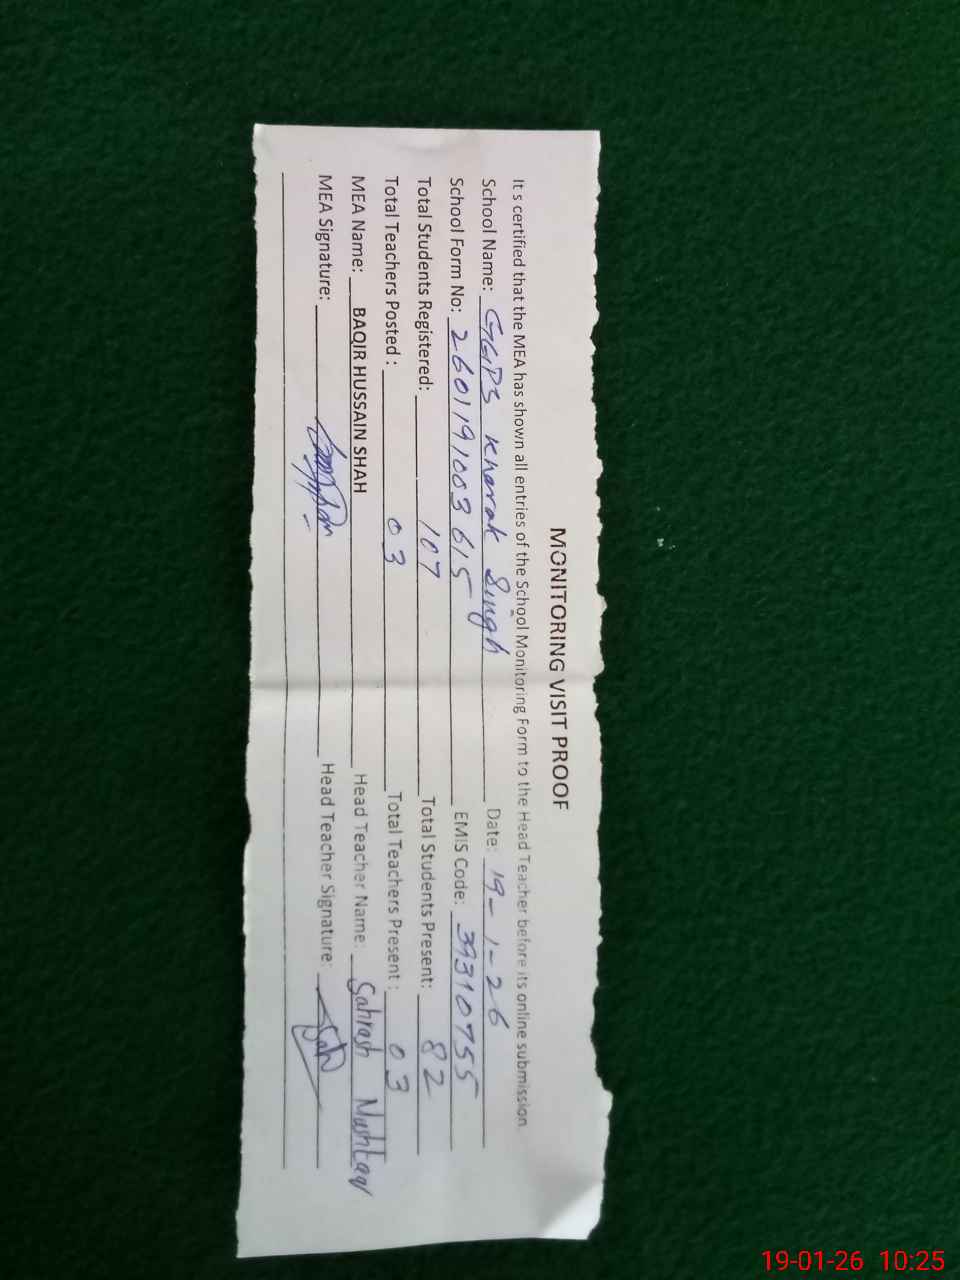 MONITORING VISIT PROOF
It s certified that the MEA has shown all entries of the School Monitoring Form to the Head Teacher before its online submission.
School Name: GGPS Kharak Singh Date: 19-1-26
School Form No: 2601191003615 EMIS Code: 39310755
Total Students Registered: 107 Total Students Present: 82
Total Teachers Posted : 03 Total Teachers Present : 03
MEA Name: BAQIR HUSSAIN SHAH Head Teacher Name: Sahrash Mushtaq
MEA Signature: Head Teacher Signature:
19-01-26 10:25